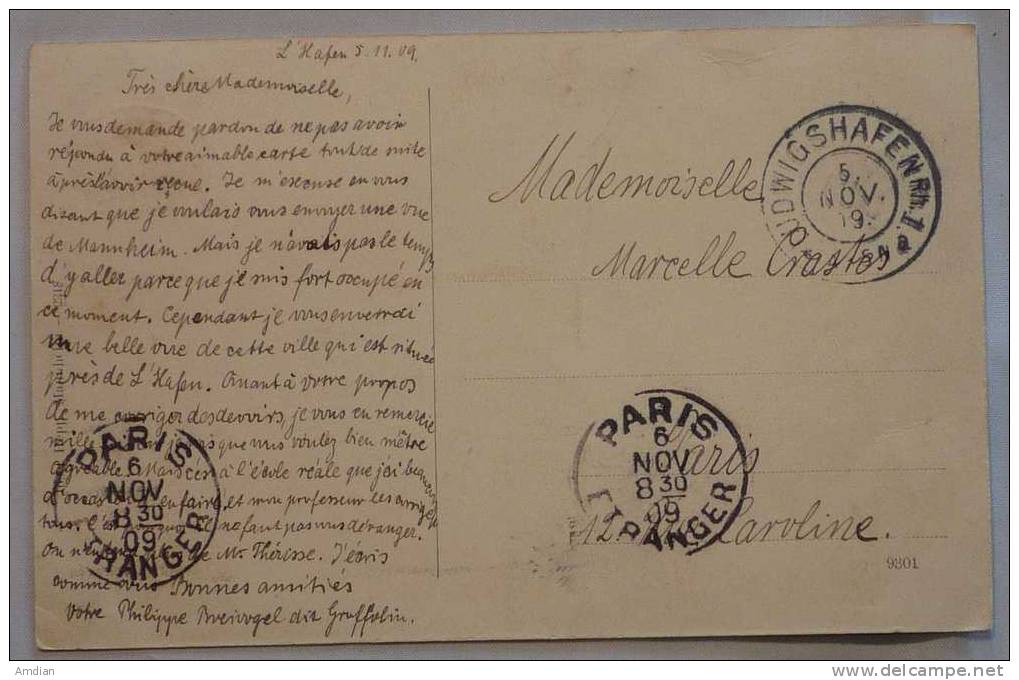 L'Hafen 5.11.09.
Très chère Mademoiselle,
Je vous demande pardon de ne pas avoir
répondu à votre aimable carte tout de suite
après l'avoir reçue. Je m'excuse en vous
disant que je voulais vous envoyer une vue
de Mannheim. Mais je n'avais pas le temps
d'y aller parce que je suis fort occupé en
ce moment. Cependant je vous enverrai
une belle vue de cette ville qui est située
près de L'Hafen. Quant à votre propos
de me corriger des devoirs, je vous en remercie
mille que vous voulez bien m'être
agréable. Mais c'est à l'école réale que j'ai
d' en faire, et mon professeur les corrige
tous. C'est il ne faut pas vous déranger.
On n' de Mr. Thérisse. J'écris
comme vous Bonnes amitiés
votre Philippe Breivogel dit Graffolin.
Mademoiselle
Marcelle Crastos
Paris
12 Caroline.
LUDWIGSHAFEN Rh. 1
5.
NOV.
PARIS
6
NOV
8 30
09
ETRANGER
PARIS
6
NOV
8 30
09
ETRANGER
9301
Amdian
delcampe.net